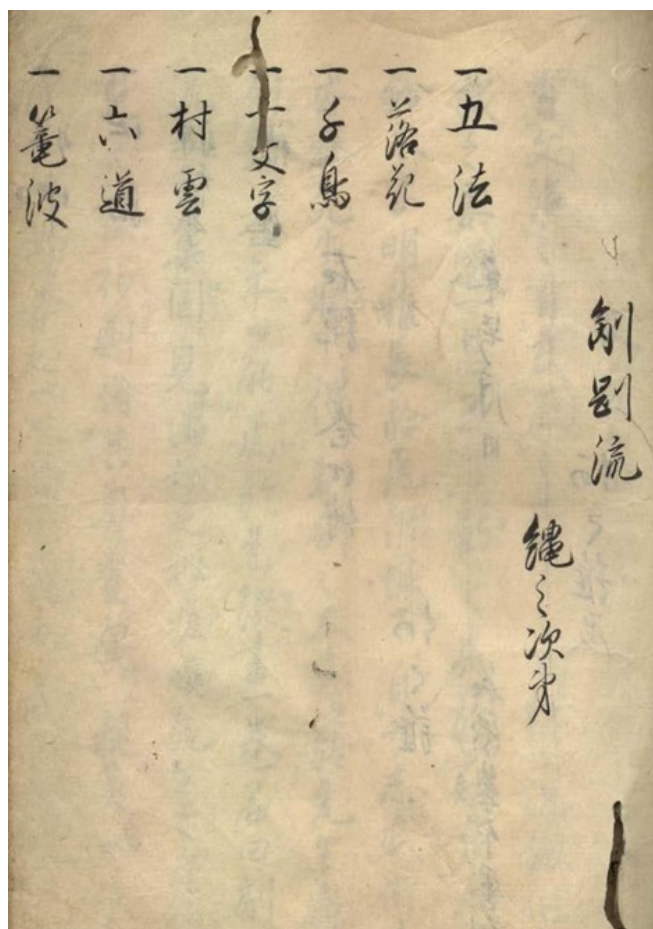 制剛流
縄之次第
一五法
一落花
一千鳥
一十文字
一村雲
一六道
一篭波